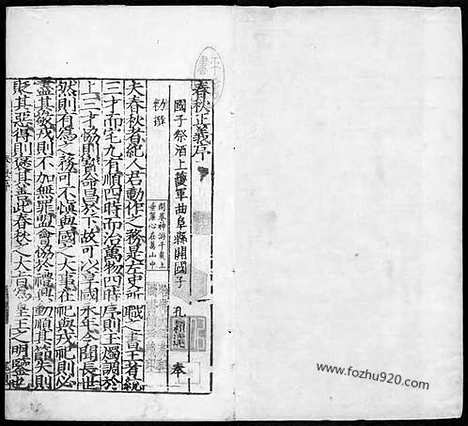 春秋正義序
國子祭酒上護軍曲阜縣開國子臣孔穎達奉
勑撰
夫春秋者紀人君動作之務是左史所職之書王者統
三才而宅九有順四時而治萬物四時序則玉燭調於
上三才協則寶命昌於下故可以享國永年令聞長世
然則有為之務可不慎與國之大事在祀與戎祀則必
盡其敬戎則不加無罪盟會協於禮興動順其節失則
貶其惡得則褒其善此春秋之大旨為皇王之明鑒也
www.fozhu920.com